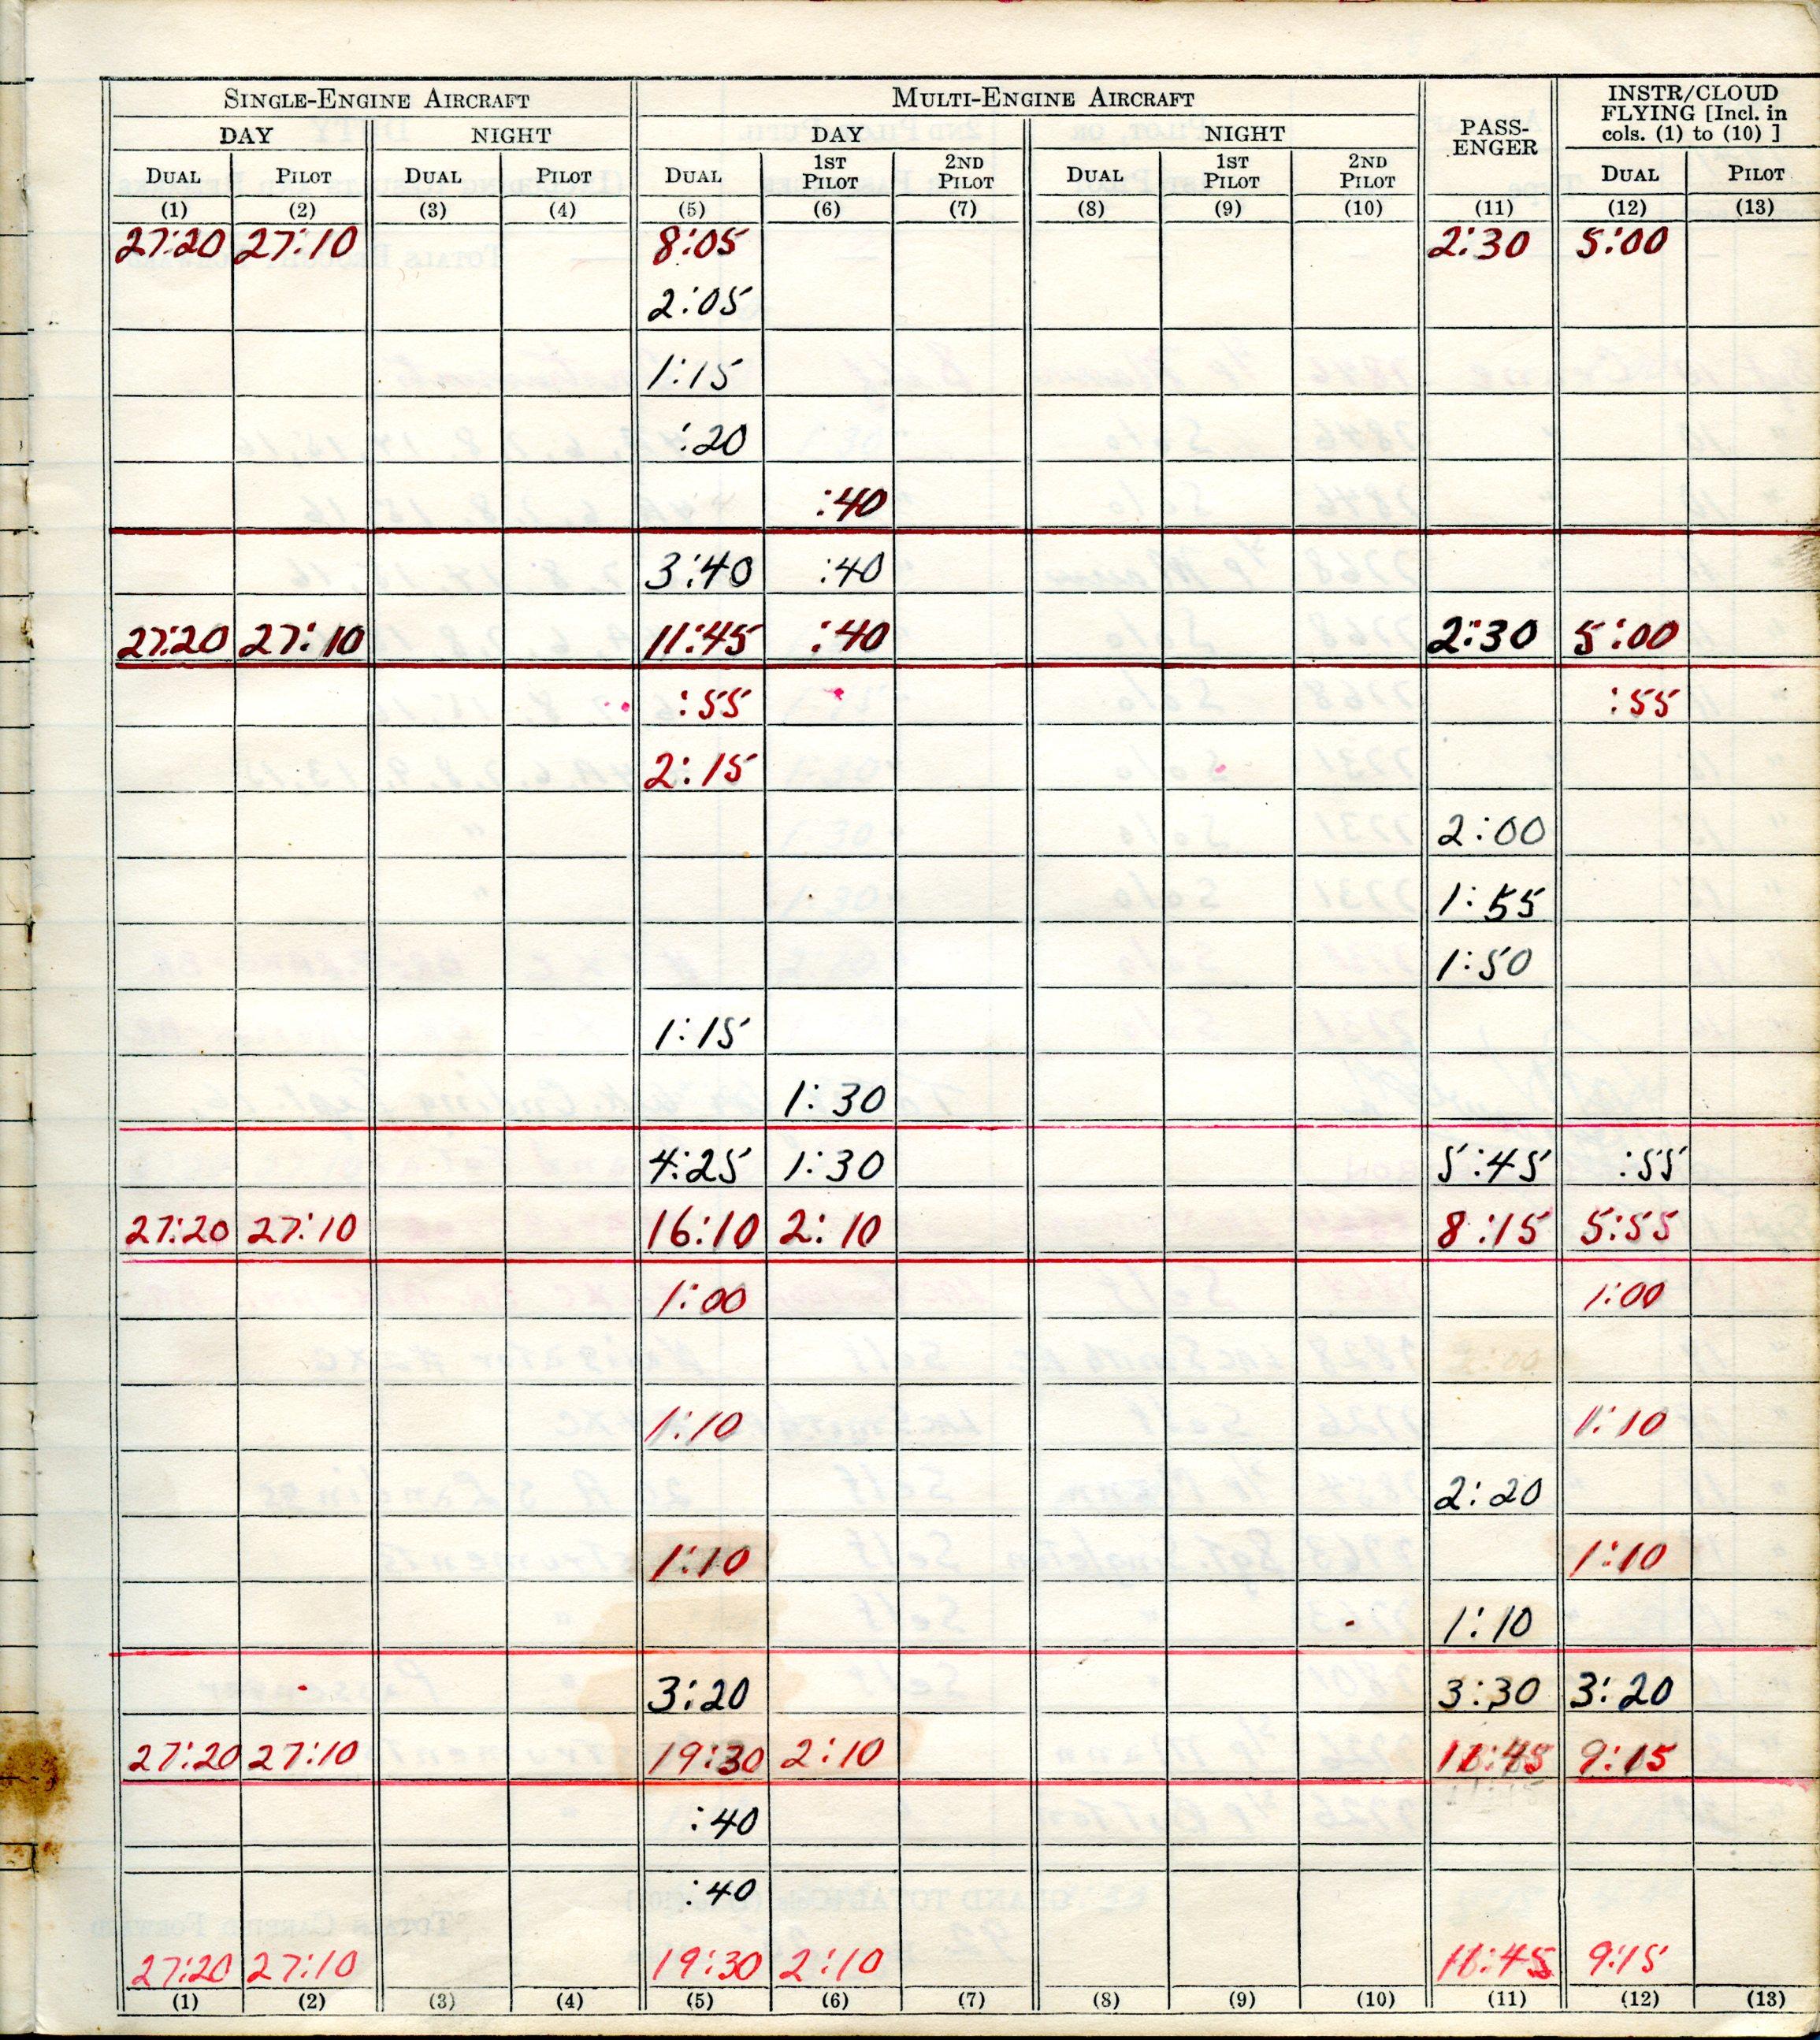 SINGLE-ENGINE AIRCRAFT MULTI-ENGINE AIRCRAFT PASS-ENGER INSTR/CLOUD FLYING [Incl. in cols. (1) to (10) ]
DAY NIGHT DAY NIGHT
DUAL PILOT DUAL PILOT DUAL 1ST PILOT 2ND PILOT DUAL 1ST PILOT 2ND PILOT DUAL PILOT
(1) (2) (3) (4) (5) (6) (7) (8) (9) (10) (11) (12) (13)
27:20 27:10 8:05 2:30 5:00
2:05
1:15
:20
:40
3:40 :40
27:20 27:10 11:45 :40 2:30 5:00
:55 :55
2:15
2:00
1:55
1:50
1:15
1:30
4:25 1:30 5:45 :55
27:20 27:10 16:10 2:10 8:15 5:55
1:00 1:00
1:10 1:10
2:20
1:10 1:10
1:10
3:20 3:30 3:20
27:20 27:10 19:30 2:10 11:45 9:15
:40
:40
27:20 27:10 19:30 2:10 11:45 9:15
(1) (2) (3) (4) (5) (6) (7) (8) (9) (10) (11) (12) (13)